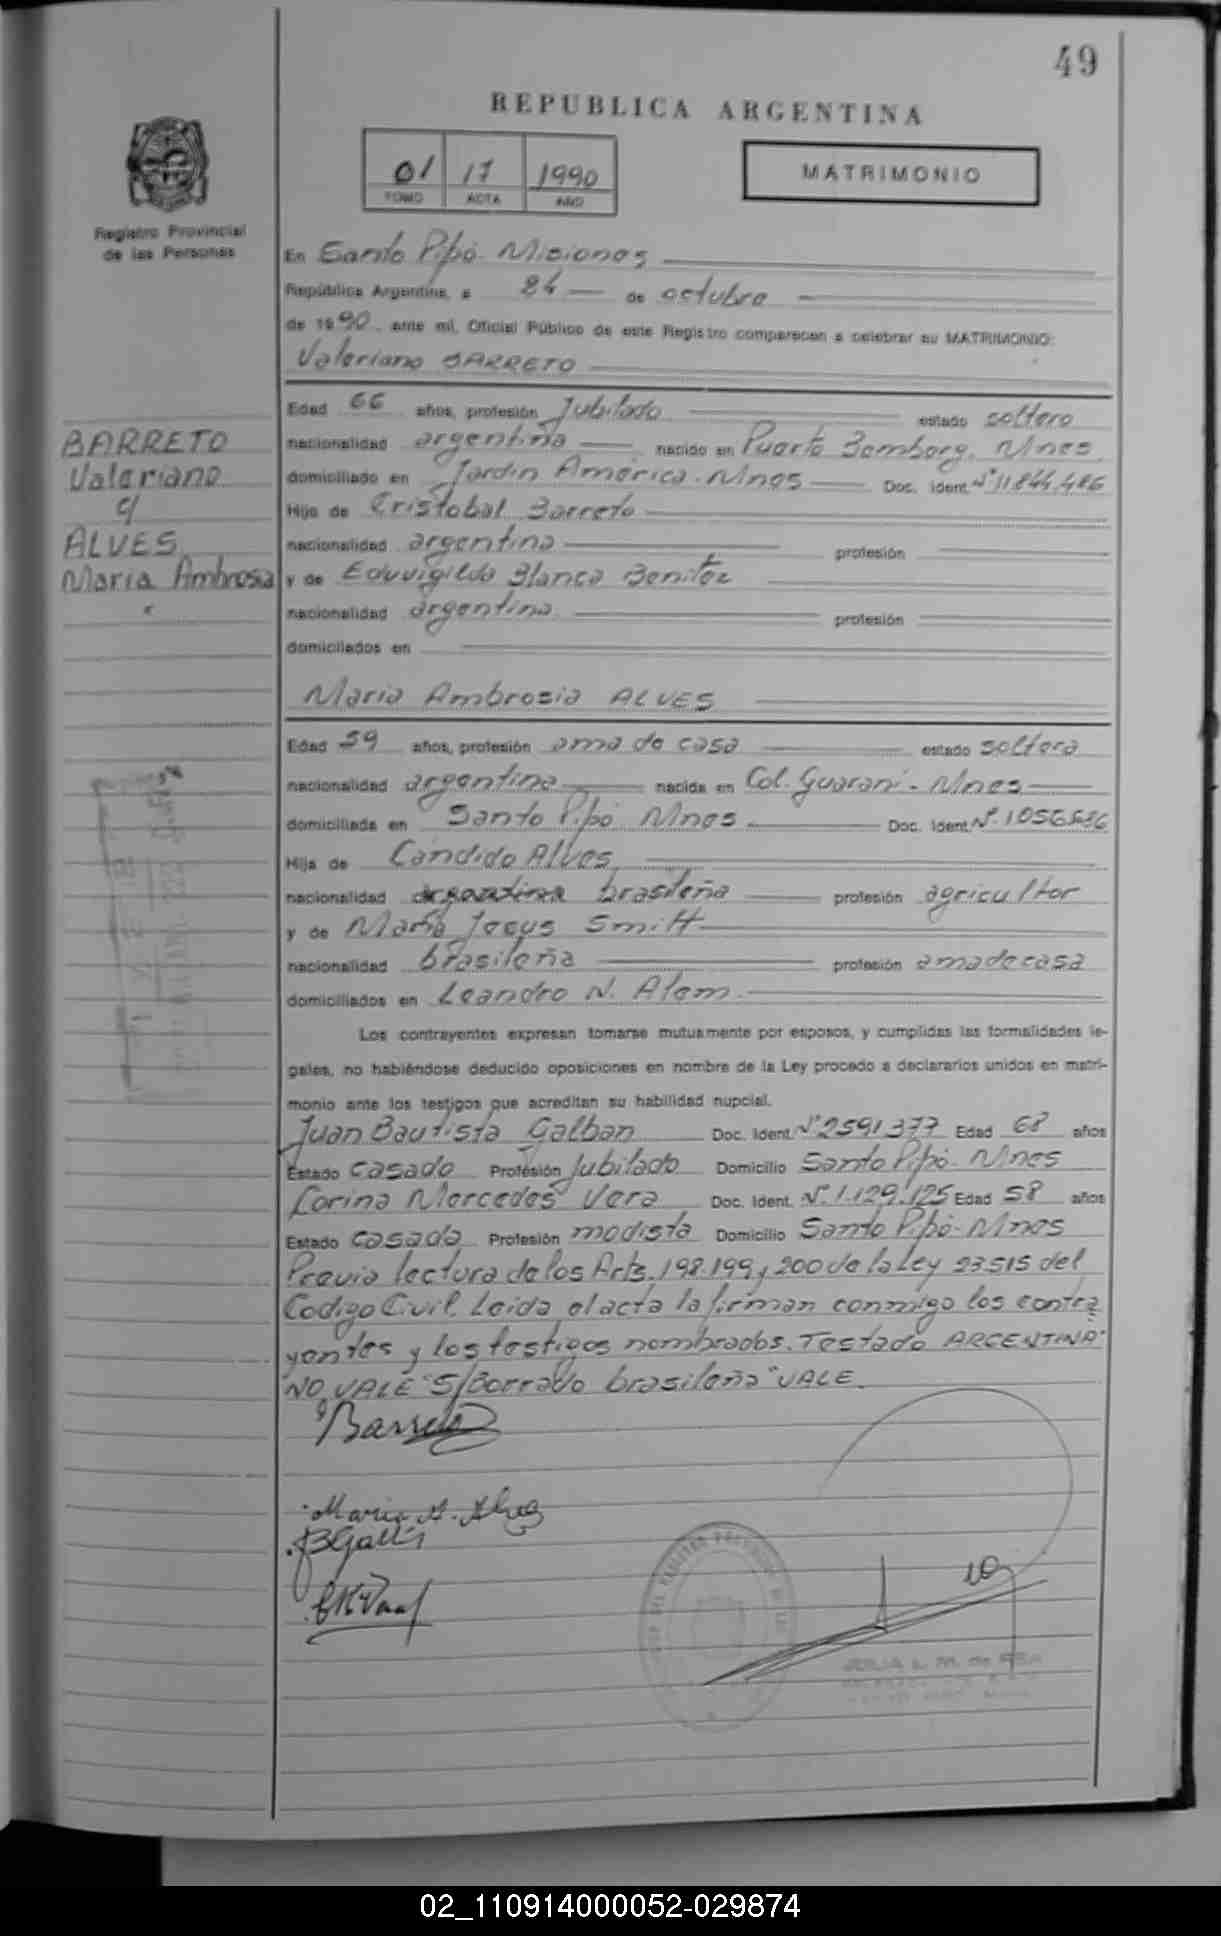 49
REPUBLICA ARGENTINA
01 17 1990
TOMO ACTA AÑO
MATRIMONIO
Registro Provincial
de las Personas
En Santo Pipó - Misiones
República Argentina, a 24 de octubre
de 1990, ante mi, Oficial Público de este Registro comparecen a celebrar su MATRIMONIO:
Valeriano BARRETO
BARRETO
Valeriano
c/
ALVES
Maria Ambrosia
Edad 66 años, profesión Jubilado estado soltero
nacionalidad argentina nacido en Puerto Bemberg, Mnes
domiciliado en Jardin América - Mnes Doc. Ident. Nº 11.844.486
Hijo de Cristobal Barreto
nacionalidad argentina profesión
y de Eduvigilda Blanca Benitez
nacionalidad argentina profesión
domiciliados en
Maria Ambrosia ALVES
Edad 59 años, profesión ama de casa estado soltera
nacionalidad argentina nacida en Col. Guaraní - Mnes
domiciliada en Santo Pipó Mnes Doc. Ident. Nº
Hija de Cándido Alves
nacionalidad argentina brasileña profesión agricultor
y de María Jesus Smitt
nacionalidad brasileña profesión ama de casa
domiciliados en Leandro N. Alem
Los contrayentes expresan tomarse mutuamente por esposos, y cumplidas las formalidades le-
gales, no habiéndose deducido oposiciones en nombre de la Ley procedo a declararlos unidos en matri-
monio ante los testigos que acreditan su habilidad nupcial.
Juan Bautista Galban Doc. Ident. Nº 2591377 Edad 68 años
Estado casado Profesión Jubilado Domicilio Santo Pipó - Mnes
Corina Mercedes Vera Doc. Ident. Nº 1.129.125 Edad 58 años
Estado casada Profesión modista Domicilio Santo Pipó - Mnes
Previa lectura de los Arts. 198.199 y 200 de la Ley 23515 del
Codigo Civil. Leida el acta la firman conmigo los contra
yentes y los testigos nombrados. Testado ARGENTINA"
NO VALE "S/Borrado brasileña" VALE.
Barreto
Maria A. Alves
02_110914000052-029874